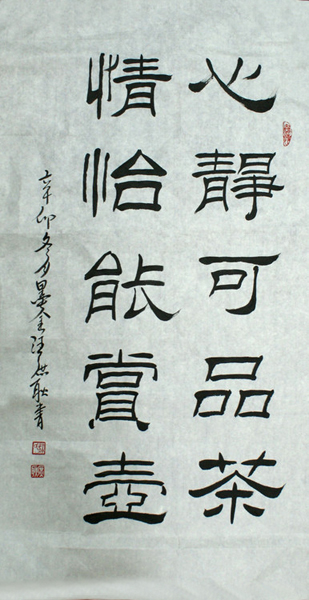 心靜可品茶
情怡能賞壺
辛卯冬月
耿青